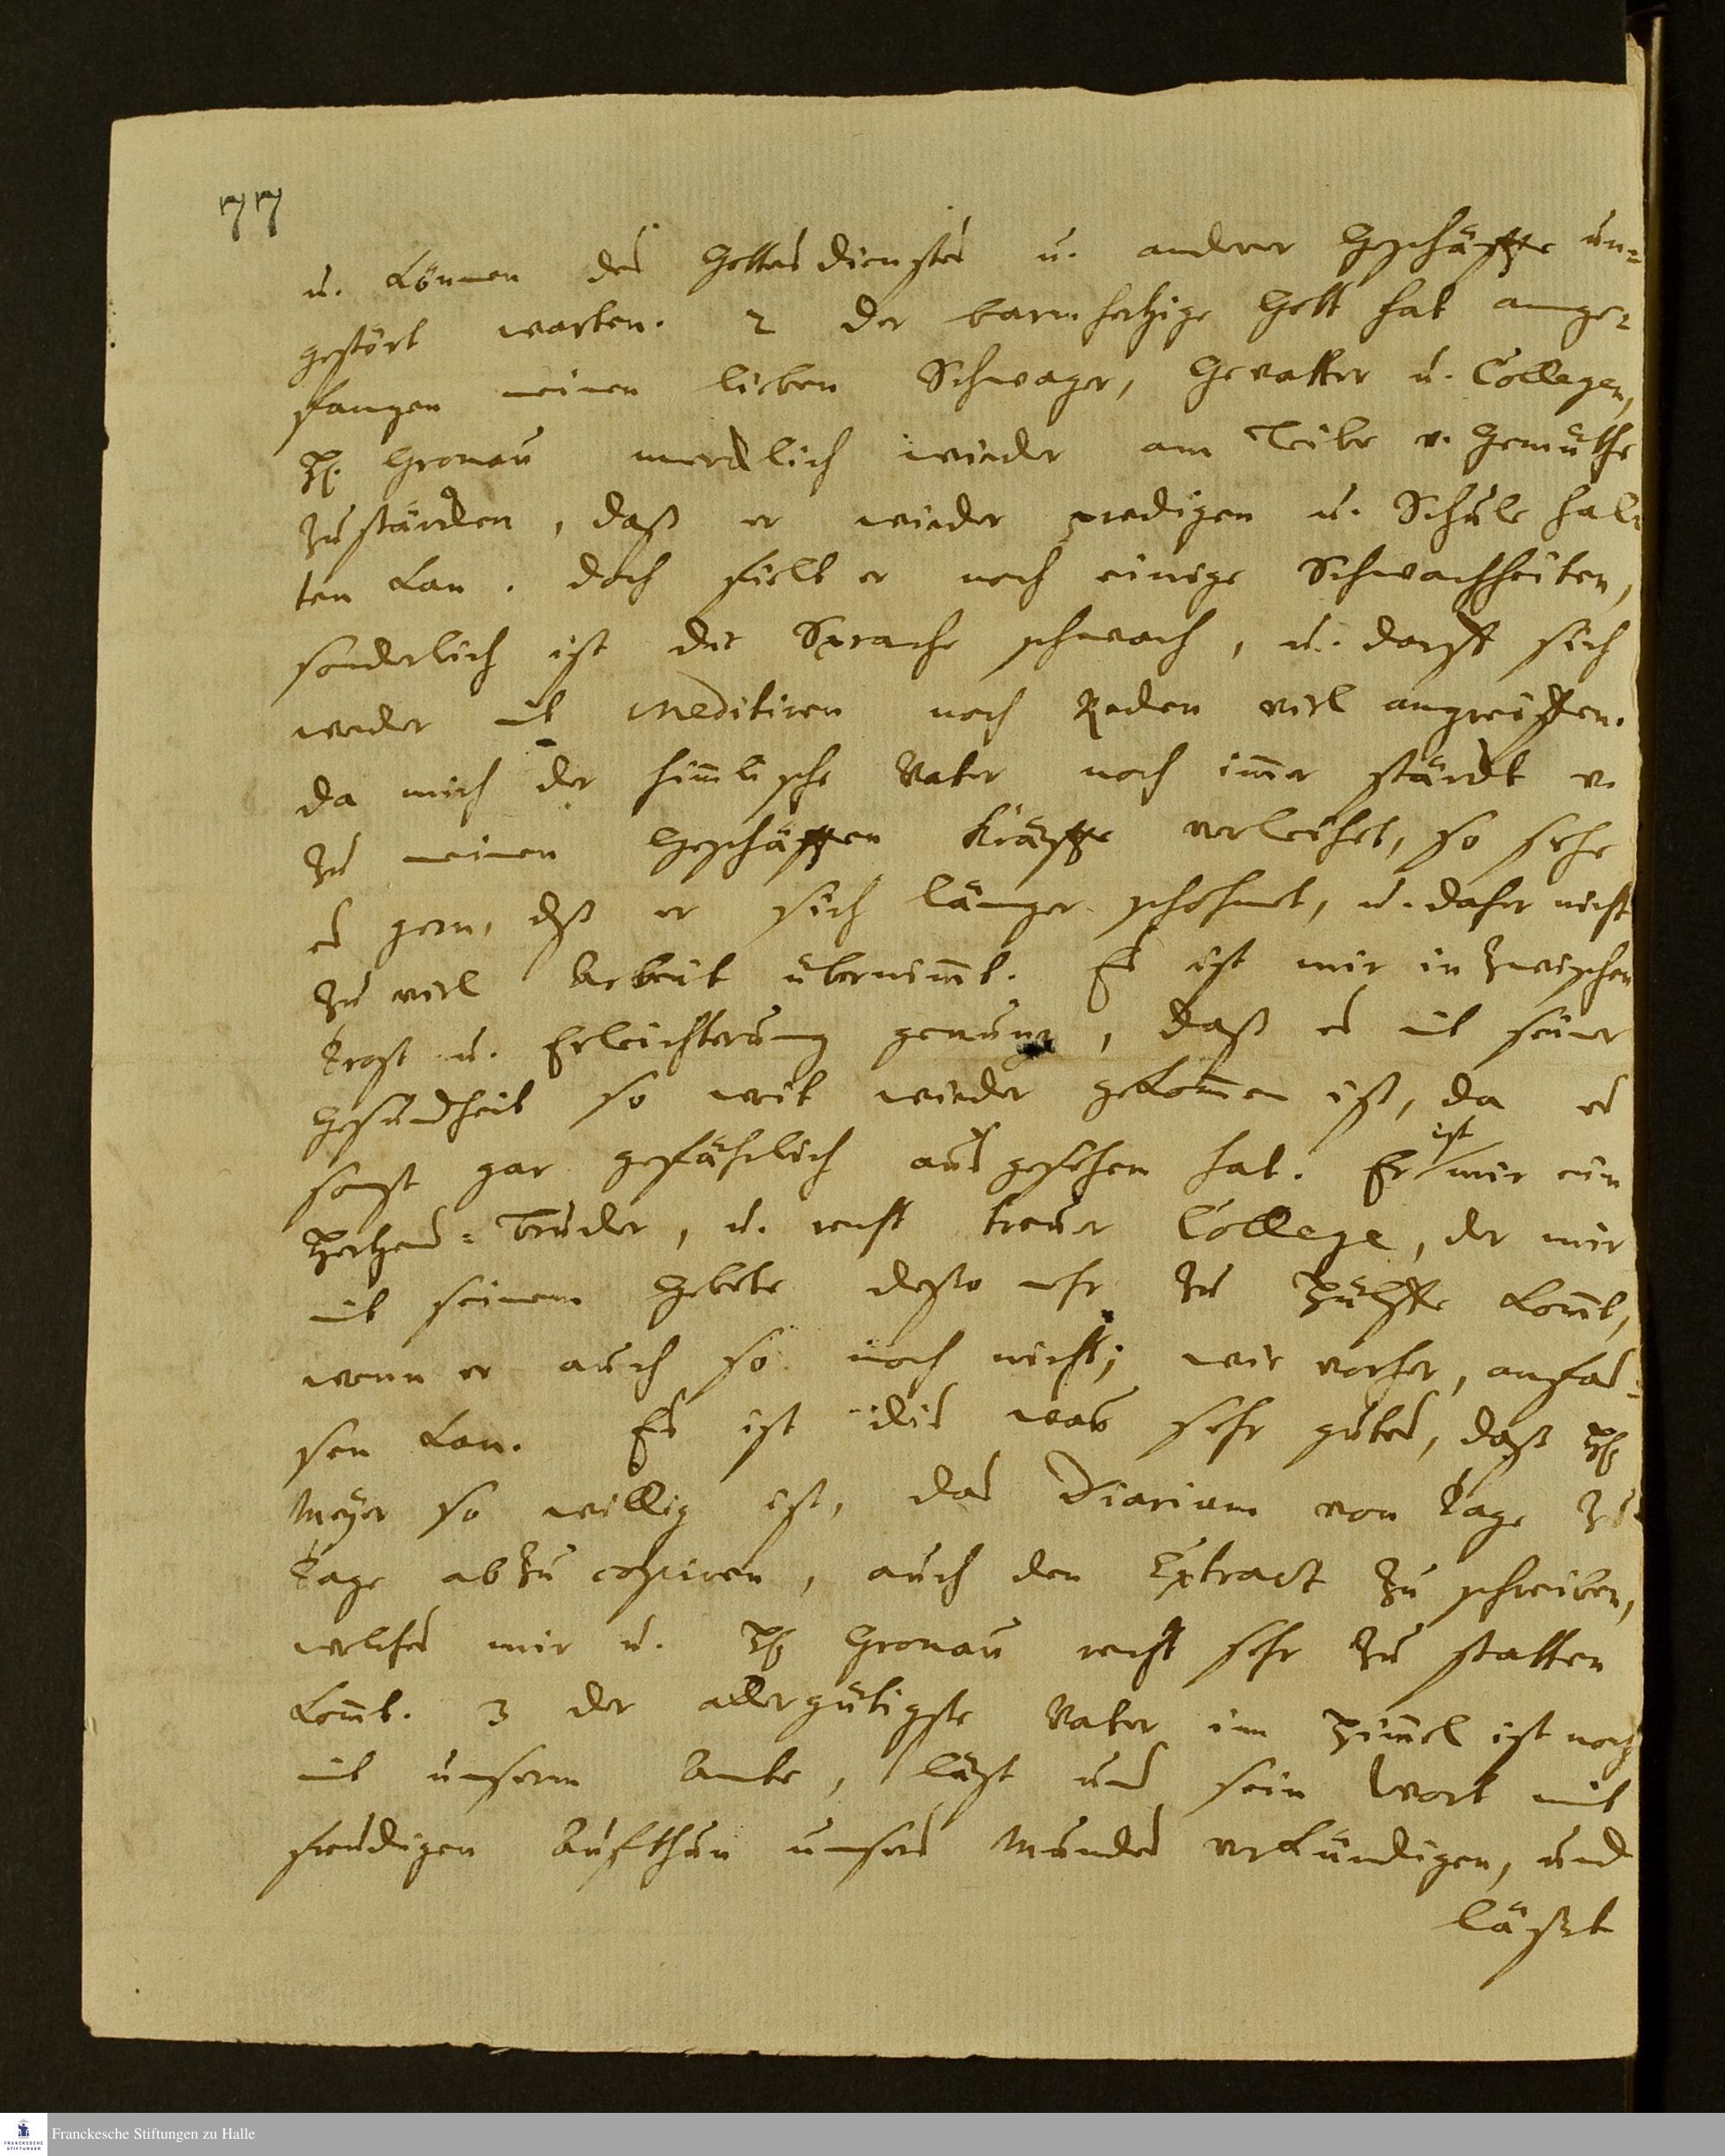 77
u. können des Gottesdienstes u. anderer Geschäffte un=
gestört warten. 2 der barmhertzige Gott hat ange=
fangen meinen lieben Schwager, Gevatter u. Collegen,
H. Gronau mercklich wieder am Leibe u. Gemüthe
zu stärcken, daß er wieder predigen u. Schule hal=
ten kan. doch fühlt er noch einige Schwachheiten,
sonderlich ist die Sprache schwach, u. darff sich
weder mit meditiren noch Reden viel angreiffen.
da mich der himlische Vater noch immer stärckt u.
zu meinen Geschäfften Kräffte verleihet, so sehe
es gern, dß er sich länger schohnet, u. daher nicht
zu viel Arbeit übernimmt. Es ist mir inzwischen
Trost u. Erleichterung genung, daß es mit seiner
Gesundheit so weit wieder gekommen ist, da es
sonst gar gefährlich ausgesehen hat. Er ist mir ein
Hertzens=Bruder, u. recht treuer College, der mir
mit seinem Gebete desto mehr zu Hülffe kommt,
wenn er auch so noch nicht, wie vorher, anfas=
sen kan. Es ist dis was sehr gutes, daß H.
Meyer so willig ist, das Diarium von Tage zu
Tage abzucopiren, auch den Extract zu schreiben,
welches mir u. H. Gronau recht sehr zu statten
kommt. 3 der allergütigste Vater im Himmel ist noch
mit unserm Amte, läst uns sein Wort mit
freudigen Aufthun unsers Mundes verkündigen, und
läßet
Franckesche Stiftungen zu Halle
FRANCKESCHE
STIFTUNGEN